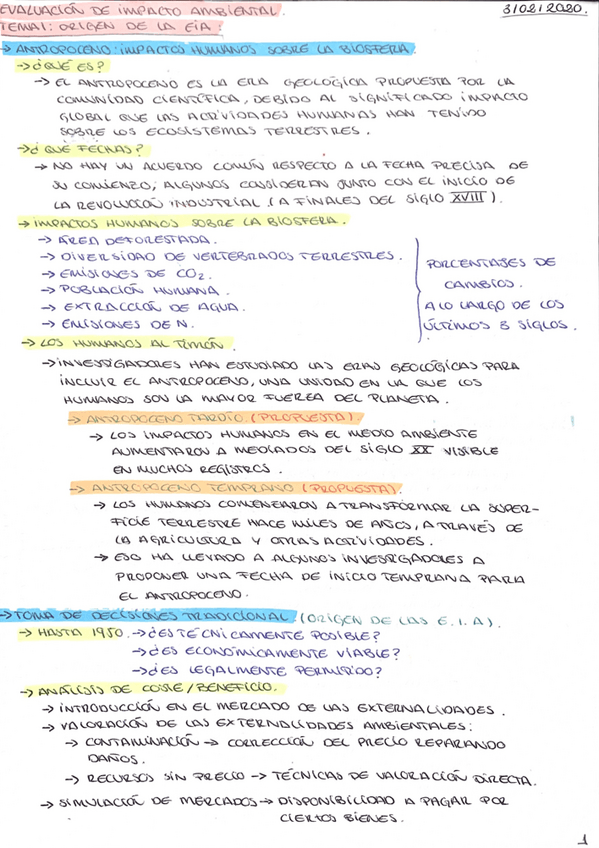 EVALUACIÓN DE IMPACTO AMBIENTAL.
3/02/2020.
TEMA1: ORIGEN DE LA EIA:
→ ANTROPOCENO: IMPACTOS HUMANOS SOBRE LA BIOSFERA.
→ ¿QUÉ ES?
→ EL ANTROPOCENO ES LA ERA GEOLÓGICA PROPUESTA POR LA
COMUNIDAD CIENTÍFICA, DEBIDO AL SIGNIFICADO IMPACTO
GLOBAL QUE LAS ACTIVIDADES HUMANAS HAN TENIDO
SOBRE LOS ECOSISTEMAS TERRESTRES.
→ ¿QUÉ FECHAS?
→ NO HAY UN ACUERDO COMÚN RESPECTO A LA FECHA PRECISA DE
SU COMIENZO, ALGUNOS CONSIDERAN JUNTO CON EL INICIO DE
LA REVOLUCIÓN INDUSTRIAL (A FINALES DEL SIGLO XVIII).
→ IMPACTOS HUMANOS SOBRE LA BIOSFERA.
→ ÁREA DEFORESTADA.
→ DIVERSIDAD DE VERTEBRADOS TERRESTRES.
→ EMISIONES DE CO2.
→ POBLACIÓN HUMANA.
→ EXTRACCIÓN DE AGUA.
→ EMISIONES DE N.
PORCENTAJES DE
CAMBIOS.
A LO LARGO DE LOS
ÚLTIMOS 3 SIGLOS.
→ LOS HUMANOS AL TIMÓN.
→ INVESTIGADORES HAN ESTUDIADO LAS ERAS GEOLÓGICAS PARA
INCLUIR EL ANTROPOCENO, UNA UNIDAD EN LA QUE LOS
HUMANOS SON LA MAYOR FUERZA DEL PLANETA.
→ ANTROPOCENO TARDÍO (PROPUESTA).
→ LOS IMPACTOS HUMANOS EN EL MEDIO AMBIENTE
AUMENTARON A MEDIADOS DEL SIGLO XX VISIBLE
EN MUCHOS REGISTROS.
→ ANTROPOCENO TEMPRANO (PROPUESTA).
→ LOS HUMANOS COMENZARON A TRANSFORMAR LA SUPER-
FICIE TERRESTRE HACE MILES DE AÑOS, A TRAVÉS DE
LA AGRICULTURA Y OTRAS ACTIVIDADES.
→ ESO HA LLEVADO A ALGUNOS INVESTIGADORES A
PROPONER UNA FECHA DE INICIO TEMPRANA PARA
EL ANTROPOCENO.
→ TOMA DE DECISIONES TRADICIONAL (ORIGEN DE LAS E.I.A).
→ HASTA 1950. → ¿ES TÉCNICAMENTE POSIBLE?
→ ¿ES ECONÓMICAMENTE VIABLE?
→ ¿ES LEGALMENTE PERMITIDO?
→ ANÁLISIS DE COSTE/BENEFICIO.
→ INTRODUCCIÓN EN EL MERCADO DE LAS EXTERNALIDADES.
→ VALORACIÓN DE LAS EXTERNALIDADES AMBIENTALES:
→ CONTAMINACIÓN → CORRECCIÓN DEL PRECIO REPARANDO
DAÑOS.
→ RECURSOS SIN PRECIO → TÉCNICAS DE VALORACIÓN DIRECTA.
→ SIMULACIÓN DE MERCADOS → DISPONIBILIDAD A PAGAR POR
CIERTOS BIENES.
1